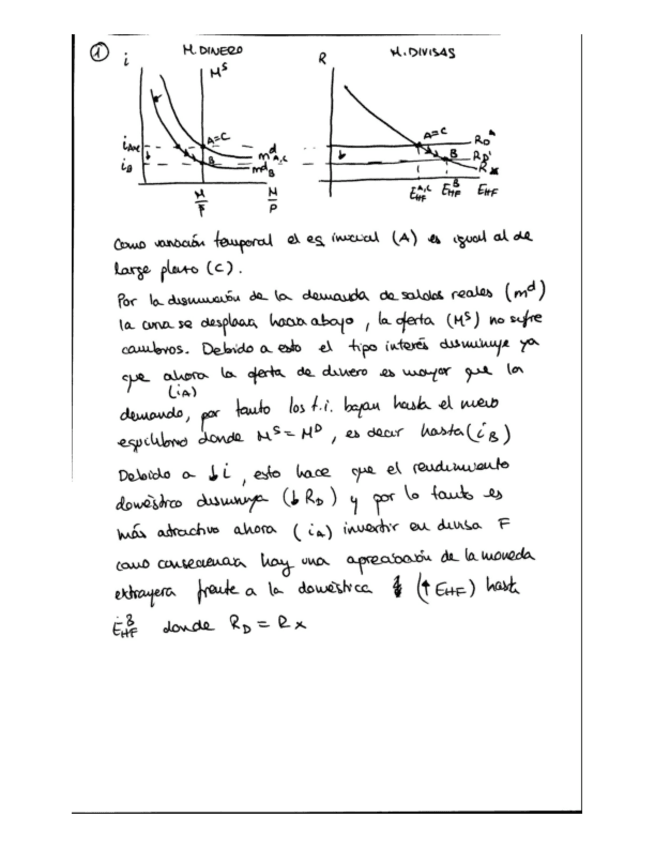 1 i M. DINERO R M. DIVISAS
M^S A=C
iA=C A=C R_D^A
B m^d_A,C B R_D'
i_B m^d_B R_x
M/P M/P E_HF^A,C E_HF^B E_HF
Como variación temporal el eq inicial (A) es igual al de
large plazo (C).
Por la disminución de la demanda de saldos reales (m^d)
la curva se desplaza hacia abajo, la oferta (M^S) no sufre
cambios. Debido a esto el tipo interés disminuye ya
que ahora la oferta de dinero es mayor que la
(i_A)
demanda, por tanto los t.i. bajan hasta el nuevo
equilibrio donde M^S = M^D, es decir hasta (i_B)
Debido a ↓i, esto hace que el rendimiento
doméstico disminuya (↓R_D) y por lo tanto es
más atractivo ahora (i_A) invertir en divisa F
como consecuencia hay una apreciación de la moneda
extrajera frente a la doméstica (↑E_HF) hasta
E_HF^B donde R_D = R_x